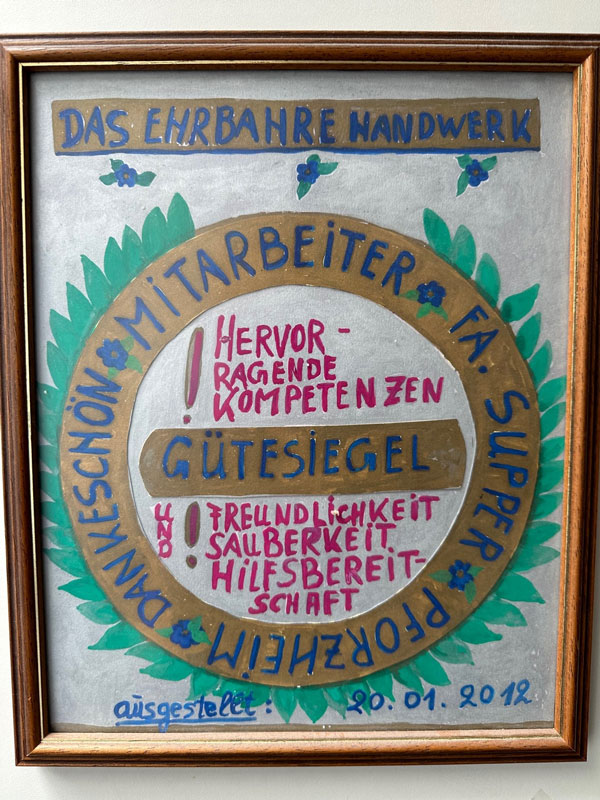 DAS EHRBAHRE HANDWERK
DANKESCHÖN MITARBEITER FA. SUPPER PFORZHEIM
! HERVOR-
RAGENDE
KOMPETENZEN
GÜTESIEGEL
UND ! FREUNDLICHKEIT
SAUBERKEIT
HILFSBEREIT-
SCHAFT
ausgestellt: 20.01.2012